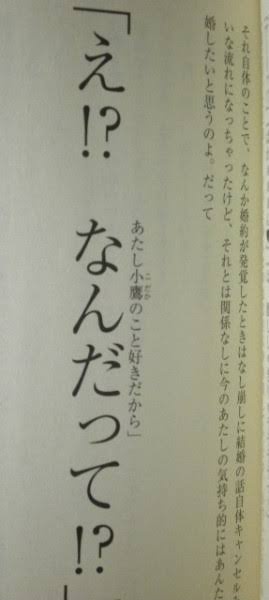 それ自体のことで、なんか婚約が発覚したときはなし崩しに結婚の話自体キャンセル
いな流れになっちゃったけど、それとは関係なしに今のあたしの気持ち的にはあんた
婚したいと思うのよ。だって
あたし小鷹のこと好きだから」
「え!?　なんだって!?」